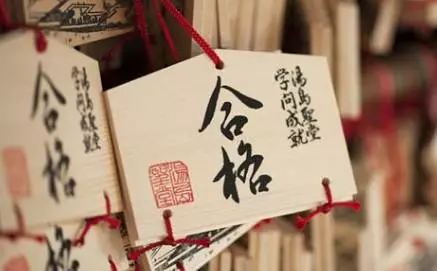 湯島聖堂
学問成就
合格
湯島聖堂
学問成就
合格